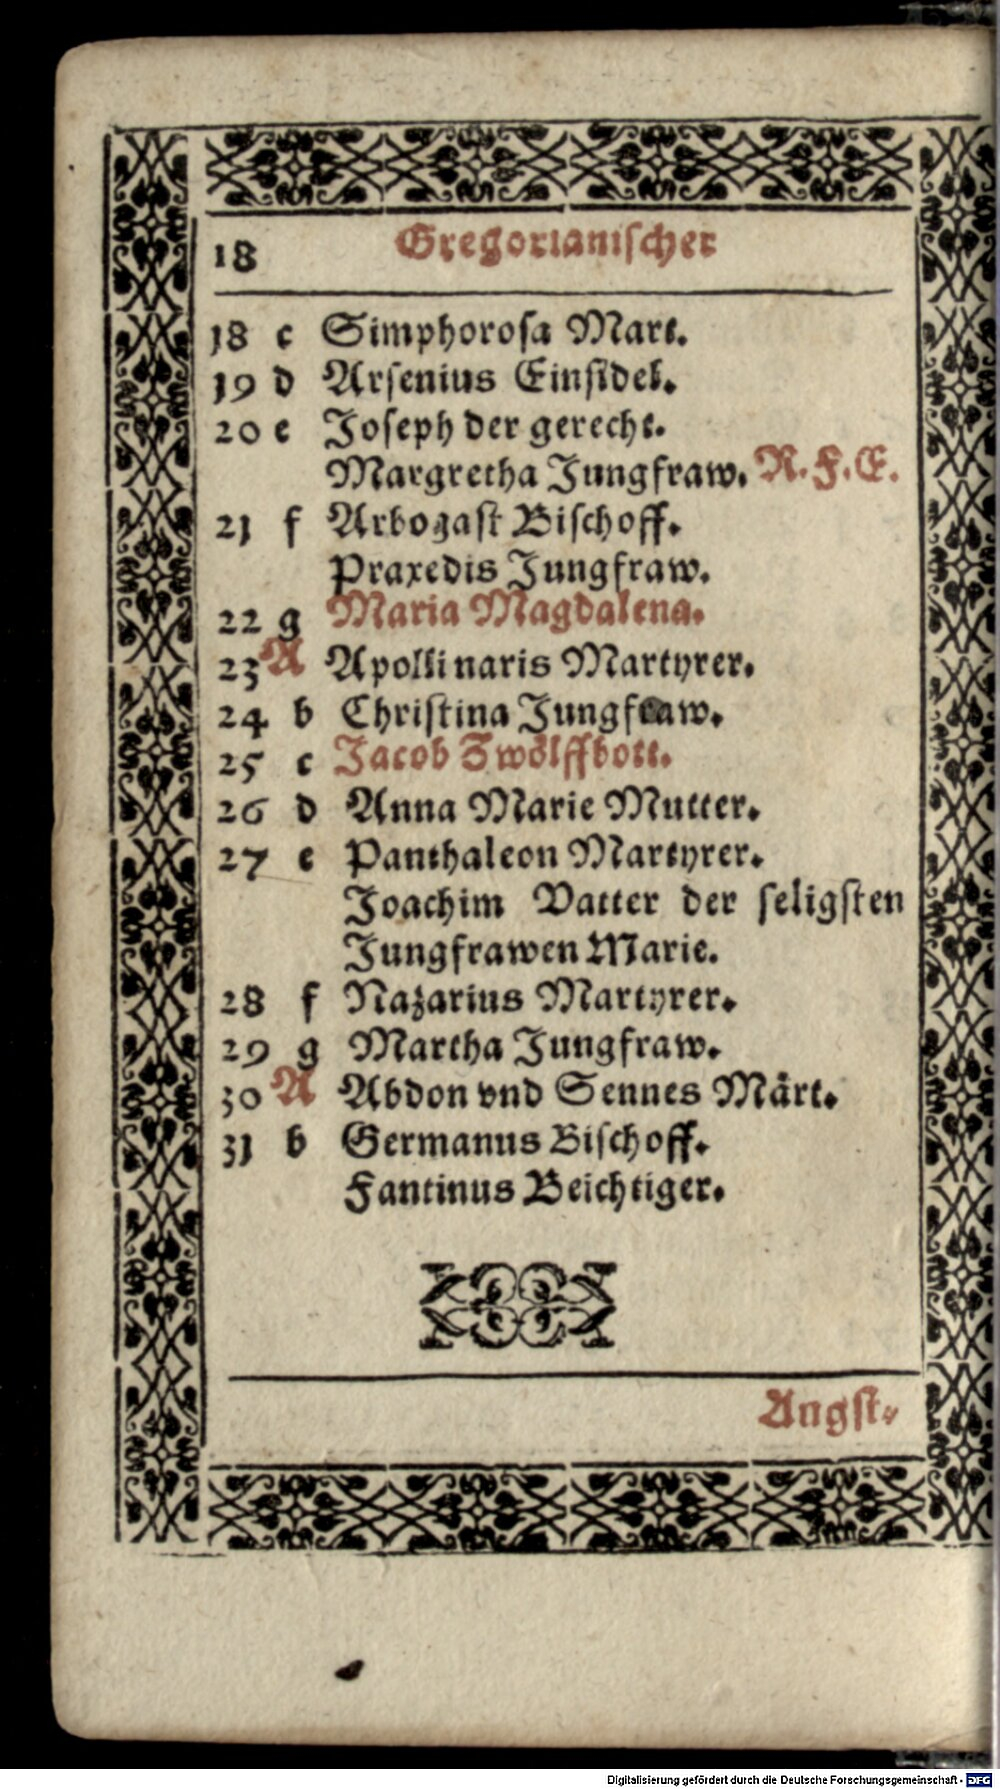 18 Gregorianischer
18 c Simphorosa Mart.
19 d Arsenius Einsidel.
20 e Joseph der gerecht.
Margretha Jungfraw. R. F. E.
21 f Arbogast Bischoff.
Praxedis Jungfraw.
22 g Maria Magdalena.
23 A Apollinaris Martyrer.
24 b Christina Jungfraw.
25 c Jacob Zwölffbott.
26 d Anna Marie Mutter.
27 e Panthaleon Martyrer.
Joachim Vatter der seligsten
Jungfrawen Marie.
28 f Nazarius Martyrer.
29 g Martha Jungfraw.
30 A Abdon vnd Sennes Märt.
31 b Germanus Bischoff.
Fantinus Beichtiger.
Augst-
Digitalisierung gefördert durch die Deutsche Forschungsgemeinschaft - DFG